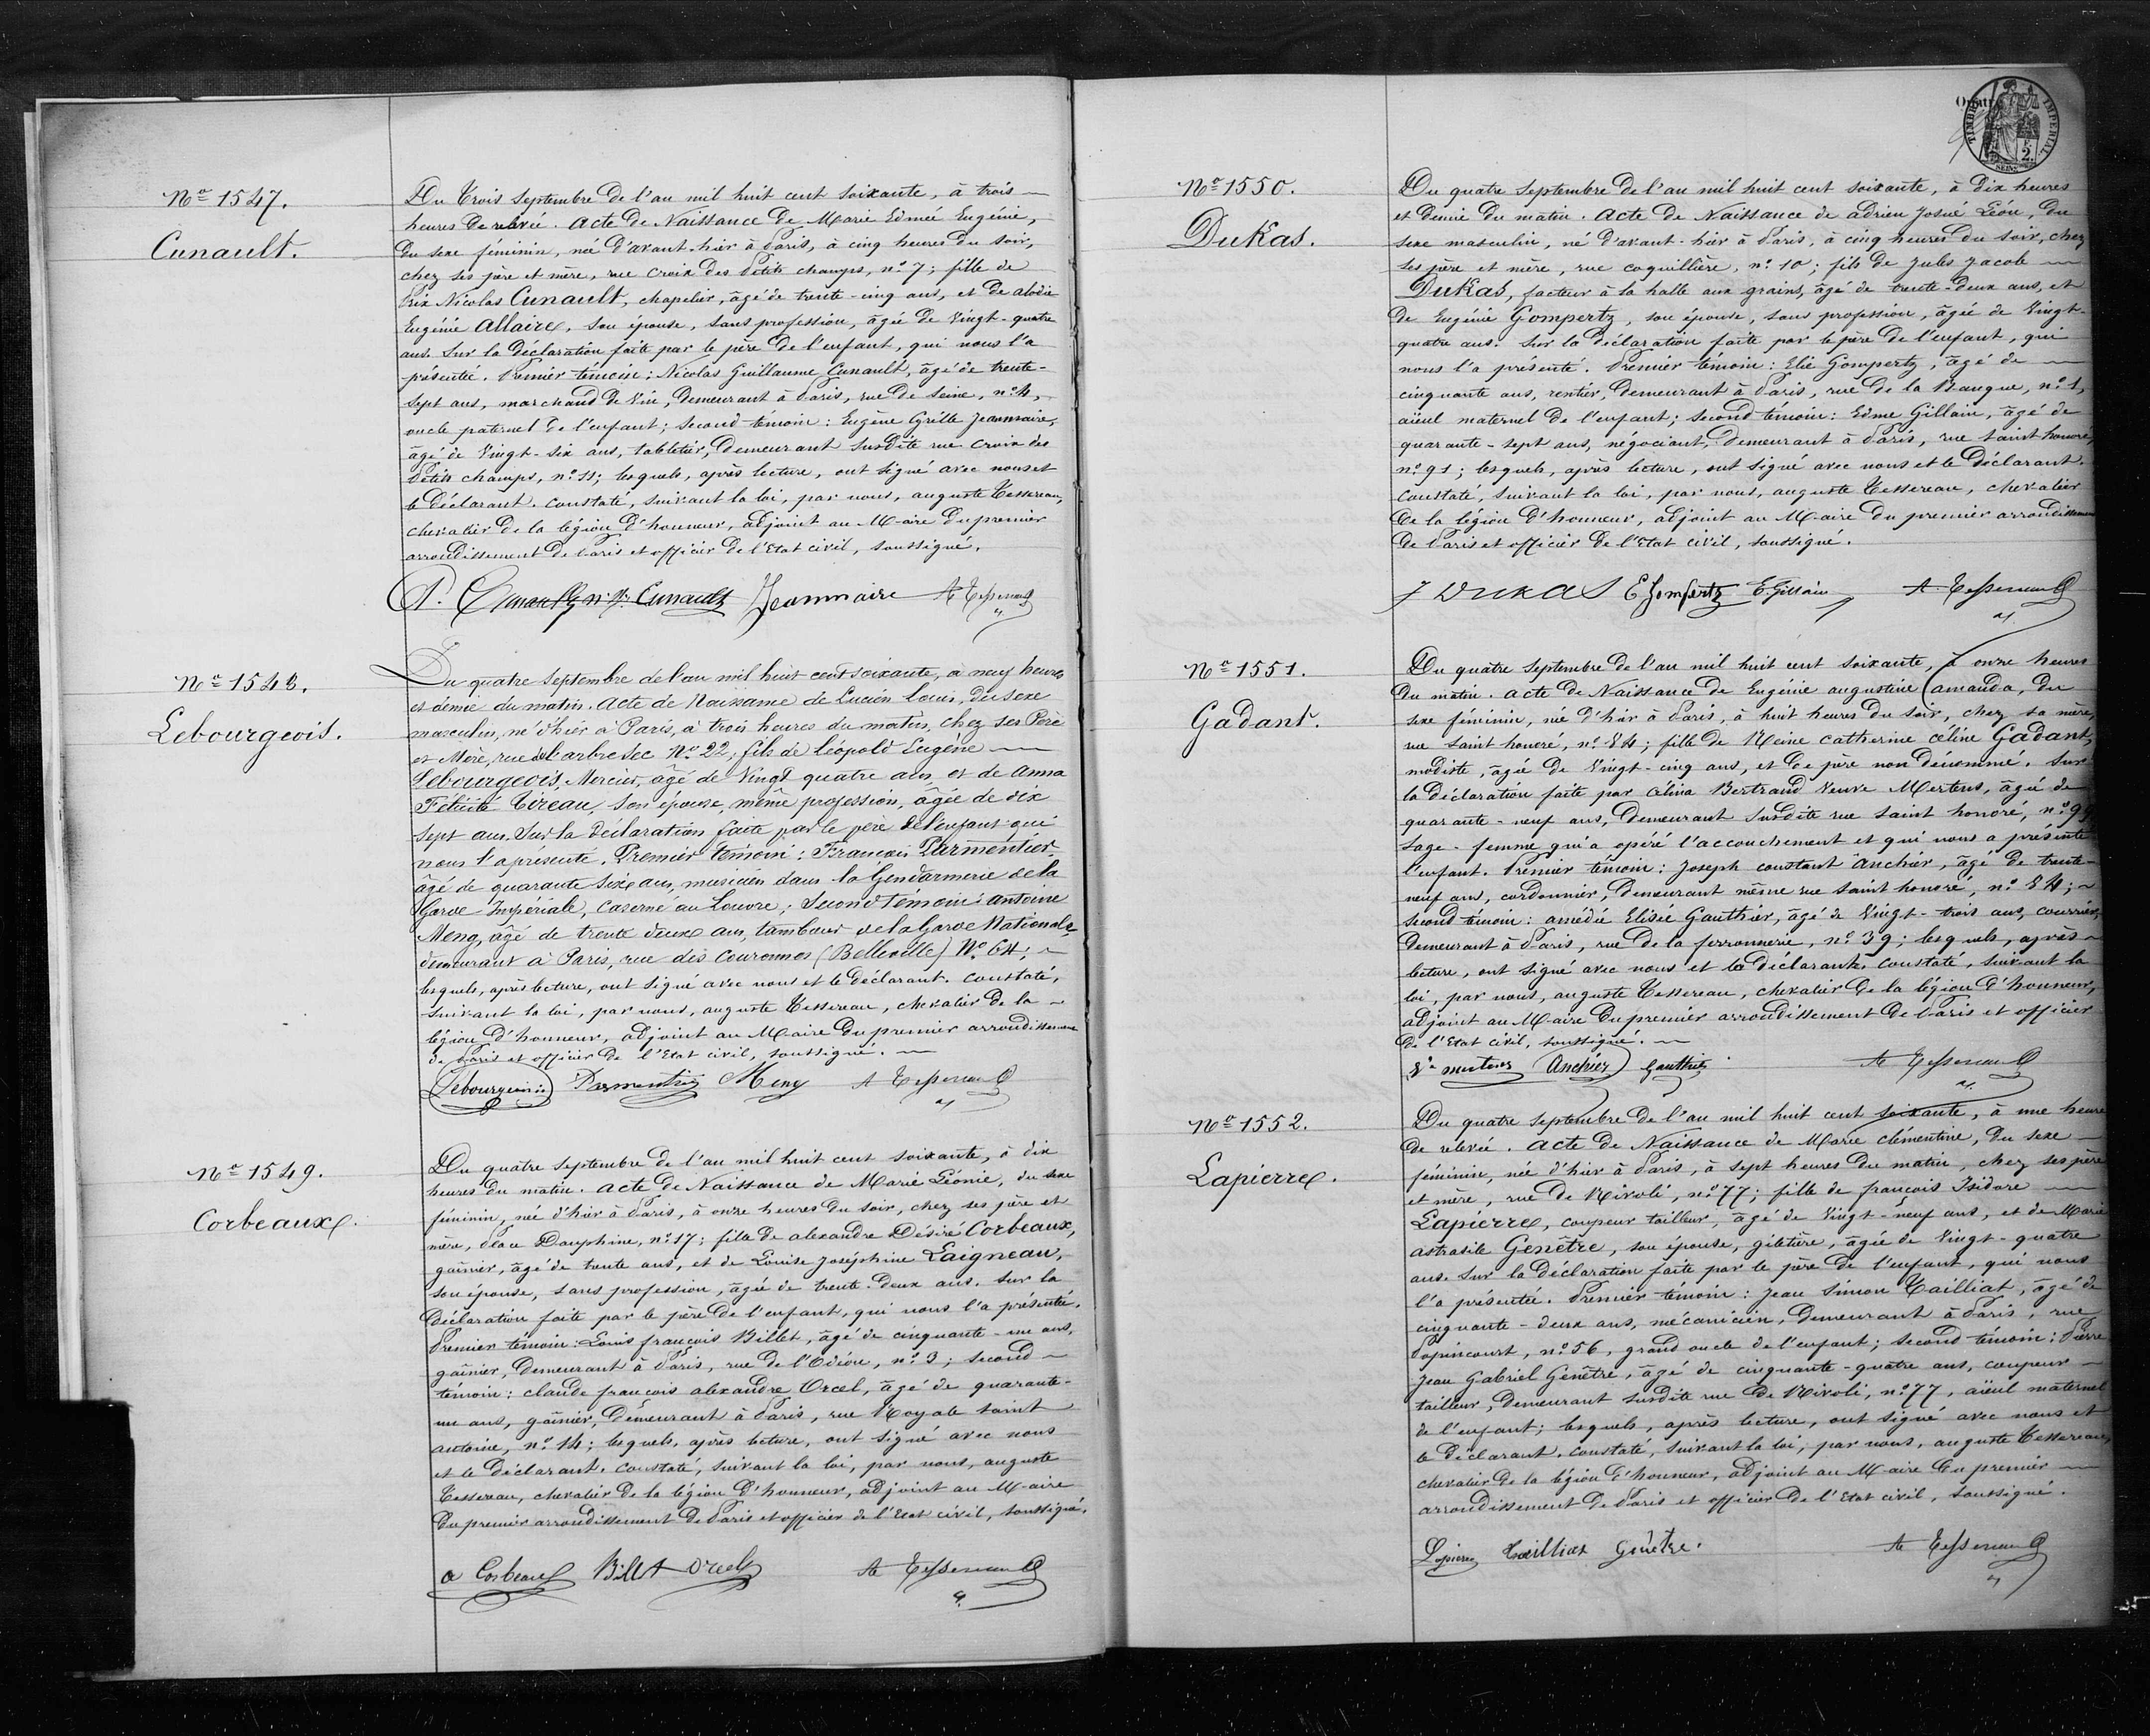 Nº 1547.
Cunault.
Du Trois Septembre de l'an mil huit cent soixante, à trois
heures de relevée. Acte de Naissance de Marie Edmée Eugénie,
du sexe féminin, née d'avant-hier à Paris, à cinq heures du soir,
chez ses père et mère, rue croix des Petits champs, nº 7; fille de
Prix Nicolas Cunault, chapelier, âgé de trente-cinq ans, et de alodie
Eugénie Allaire, son épouse, sans profession, âgée de vingt-quatre
ans. Sur la déclaration faite par le père de l'enfant, qui nous l'a
présentée. Premier témoin: Nicolas Guillaume Cunault, âgé de trente-
sept ans, marchand de vin, demeurant à Paris, rue de Seine, nº 4,
oncle paternel de l'enfant; Second témoin: Eugène Grille Jeanmaire,
âgé de vingt-six ans, tabletier, demeurant susdite rue croix des
Petits champs, nº 11; lesquels, après lecture, ont signé avec nous et
le déclarant. Constaté, suivant la loi, par nous, auguste Tessereau,
chevalier de la légion d'honneur, adjoint au Maire du premier
arrondissement de Paris et officier de l'Etat civil, soussigné.
P. Cunault N. G. Cunault Jeanmaire A Tessereau
Nº 1548.
Lebourgeois.
Du quatre Septembre de l'an mil huit cent soixante, à neuf heures
et demie du matin. Acte de Naissance de Lucien Louis, du sexe
masculin, né d'hier à Paris, à trois heures du matin, chez ses Père
et Mère, rue de l'arbre sec Nº 22, fils de Léopold Eugène
Lebourgeois, Mercier, âgé de Vingt quatre ans, et de Anna
Félicité Tireau, son épouse, même profession, âgée de dix
sept ans. Sur la déclaration faite par le père de l'enfant qui
nous l'a présenté. Premier témoin: François Parmentier,
âgé de quarante six ans, musicien dans la Gendarmerie de la
Garde Impériale, caserné au Louvre; Second témoin: Antoine
Meng, âgé de trente deux ans, tambour de la Garde Nationale,
demeurant à Paris, rue des Couronnes (Belleville) Nº 64;
lesquels, après lecture, ont signé avec nous et le déclarant. constaté,
suivant la loi, par nous, auguste Tessereau, chevalier de la
légion d'honneur, adjoint au Maire du premier arrondissement
de Paris et officier de l'Etat civil, soussigné.
Lebourgeois Parmentier Meng A Tessereau
Nº 1549.
Corbeaux.
Du quatre Septembre de l'an mil huit cent soixante, à dix
heures du matin. Acte de Naissance de Marie Léonie, du sexe
féminin, née d'hier à Paris, à onze heures du soir, chez ses père et
mère, place Dauphine, nº 17; fille de alexandre Désiré Corbeaux,
gaînier, âgé de trente ans, et de Louise Joséphine Laigneau,
son épouse, sans profession, âgée de trente-deux ans. Sur la
déclaration faite par le père de l'enfant, qui nous l'a présentée.
Premier témoin: Louis françois Billet, âgé de cinquante-un ans,
gaînier, demeurant à Paris, rue de l'Odéon, nº 3; second
témoin: claude françois alexandre Orcel, âgé de quarante-
un ans, gaînier, demeurant à Paris, rue Royale saint
antoine, nº 14; lesquels, après lecture, ont signé avec nous
et le déclarant. Constaté, suivant la loi, par nous, auguste
Tessereau, chevalier de la légion d'honneur, adjoint au Maire
du premier arrondissement de Paris et officier de l'Etat civil, soussigné.
a Corbeaux Billet Orcel A Tessereau
TIMBRE IMPÉRIAL
2.
SEINE
Nº 1550.
DuKas.
Du quatre Septembre de l'an mil huit cent soixante, à dix heures
et demie du matin. Acte de Naissance de adrien Josué Léon, du
sexe masculin, né d'avant-hier à Paris, à cinq heures du soir, chez
ses père et mère, rue coquillière, nº 10; fils de Jules Jacob
DuKas, facteur à la halle aux grains, âgé de trente-deux ans, et
de Eugénie Gompertz, son épouse, sans profession, âgée de Vingt-
quatre ans. Sur la déclaration faite par le père de l'enfant, qui
nous l'a présenté. Premier témoin: Elie Gompertz, âgé de
cinquante ans, rentier, demeurant à Paris, rue de la Banque, nº 1,
aïeul maternel de l'enfant; second témoin: Edme Gillain, âgé de
quarante-sept ans, négociant, demeurant à Paris, rue saint honoré,
nº 91; lesquels, après lecture, ont signé avec nous et le déclarant.
Constaté, suivant la loi, par nous, auguste Tessereau, chevalier
de la légion d'honneur, adjoint au Maire du premier arrondissement
de Paris et officier de l'Etat civil, soussigné.
J DUKAS E Gompertz E. Gillain A. Tessereau
Nº 1551.
Gadant.
Du quatre Septembre de l'an mil huit cent soixante, à onze heures
du matin. Acte de Naissance de Eugénie augustine amanda, du
sexe féminin, née d'hier à Paris, à huit heures du soir, chez sa mère,
rue saint honoré, nº 84; fille de Reine catherine céline Gadant,
modiste, âgée de Vingt-cinq ans, et de père non dénommé. Sur
la déclaration faite par célina Bertrand Veuve Mertens, âgée de
quarante-neuf ans, demeurant susdite rue saint honoré, nº 99
sage-femme qui a opéré l'accouchement et qui nous a présenté
l'enfant. Premier témoin: Joseph constant anchier, âgé de trente-
neuf ans, cordonnier, demeurant même rue saint honoré, nº 84;
second témoin: amédée Elisée Gauthier, âgé de Vingt-trois ans, courrier,
demeurant à Paris, rue de la ferronnerie, nº 39; lesquels, après
lecture, ont signé avec nous et la déclarante. Constaté, suivant la
loi, par nous, auguste Tessereau, chevalier de la légion d'honneur,
adjoint au Maire du premier arrondissement de Paris et officier
de l'Etat civil, soussigné.
Vᵉ mertens Anchier Gauthier A Tessereau
Nº 1552.
Lapierre.
Du quatre septembre de l'an mil huit cent soixante, à une heure
de relevée. Acte de Naissance de Marie clémentine, du sexe
féminin, née d'hier à Paris, à sept heures du matin, chez ses père
et mère, rue de Rivoli, nº 77; fille de françois Isidore
Lapierre, coupeur tailleur, âgé de Vingt-neuf ans, et de Marie
astrasile Genêtre, son épouse, giletière, âgée de vingt-quatre
ans. Sur la déclaration faite par le père de l'enfant, qui nous
l'a présentée. Premier témoin: Jean Simon Tailliat, âgé de
cinquante-deux ans, mécanicien, demeurant à Paris, rue
Popincourt, nº 56, grand oncle de l'enfant; second témoin: Pierre
Jean Gabriel Genêtre, âgé de cinquante-quatre ans, coupeur
tailleur, demeurant susdite rue de Rivoli, nº 77, aïeul maternel
de l'enfant; lesquels, après lecture, ont signé avec nous et
le déclarant. Constaté, suivant la loi, par nous, auguste Tessereau,
chevalier de la légion d'honneur, adjoint au Maire du premier
arrondissement de Paris et officier de l'Etat civil, soussigné.
Lapierre Tailliat Genêtre. A Tessereau